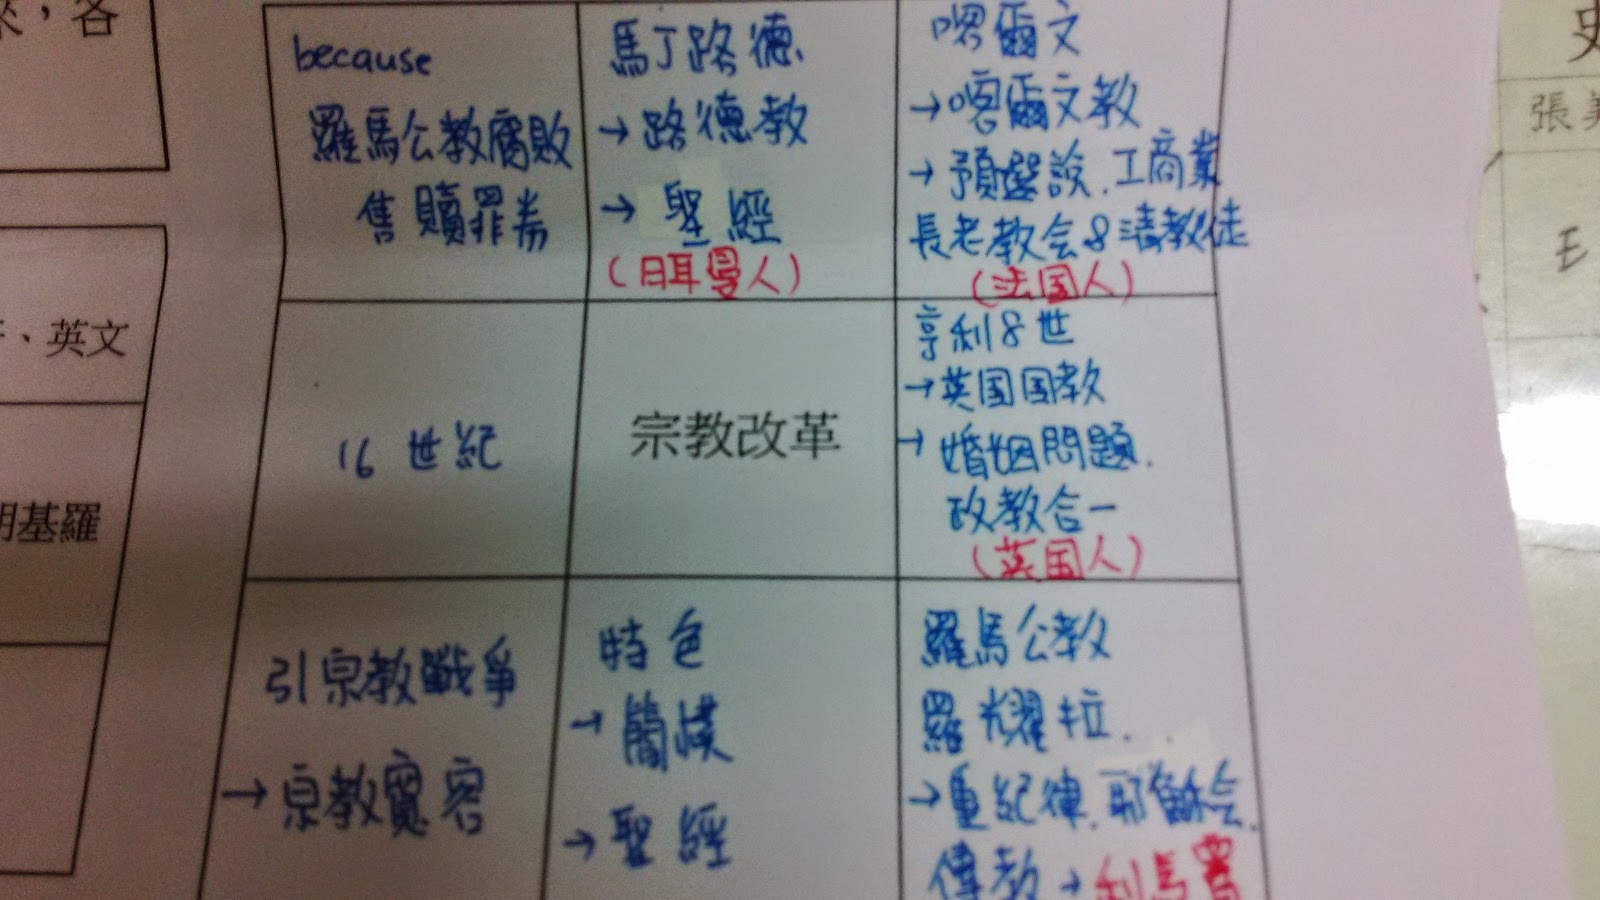 ，各
、英文
基羅
because
羅馬公教腐敗
售贖罪券
馬丁路德
→路德教
→聖經
(日耳曼人)
喀爾文
→喀爾文教
→預選說.工商業
長老教会&清教徒
(法国人)
16世紀
宗教改革
亨利8世
→英国国教
→婚姻問題.
政教合一
(英国人)
引宗教戰爭
→宗教寬容
特色
→簡樸
→聖經
羅馬公教
羅耀拉.
→重紀律.耶穌会.
傳教→利馬竇
張美